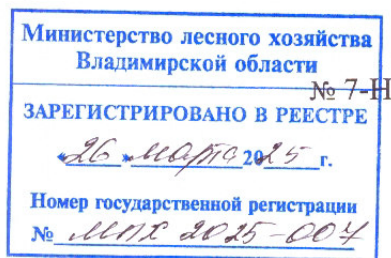 Министерство лесного хозяйства
Владимирской области
№ 7-Н
ЗАРЕГИСТРИРОВАНО В РЕЕСТРЕ
«26» марта 2025 г.
Номер государственной регистрации
№ МЛХ 2025-007